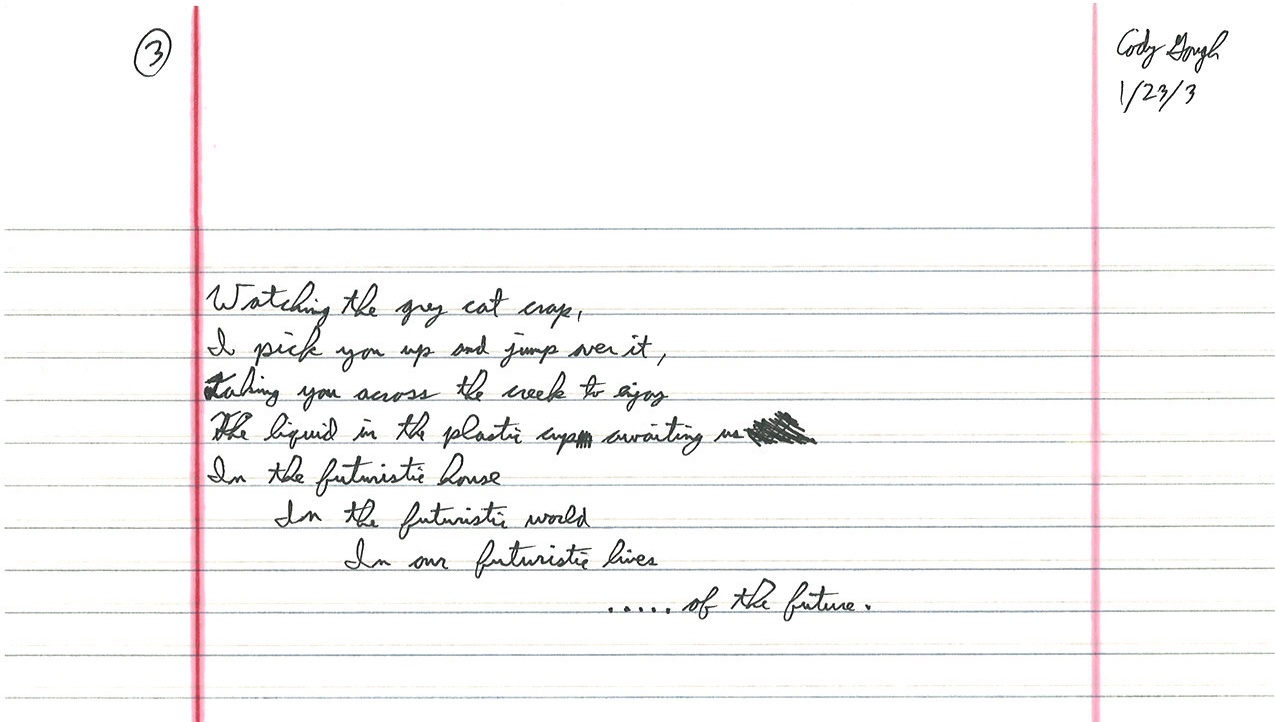 3
Cody Gough
1/23/3
Watching the grey cat crap,
I pick you up and jump over it,
Taking you across the creek to enjoy
The liquid in the plastic cups awaiting us
In the futuristic house
In the futuristic world
In our futuristic lives
..... of the future.